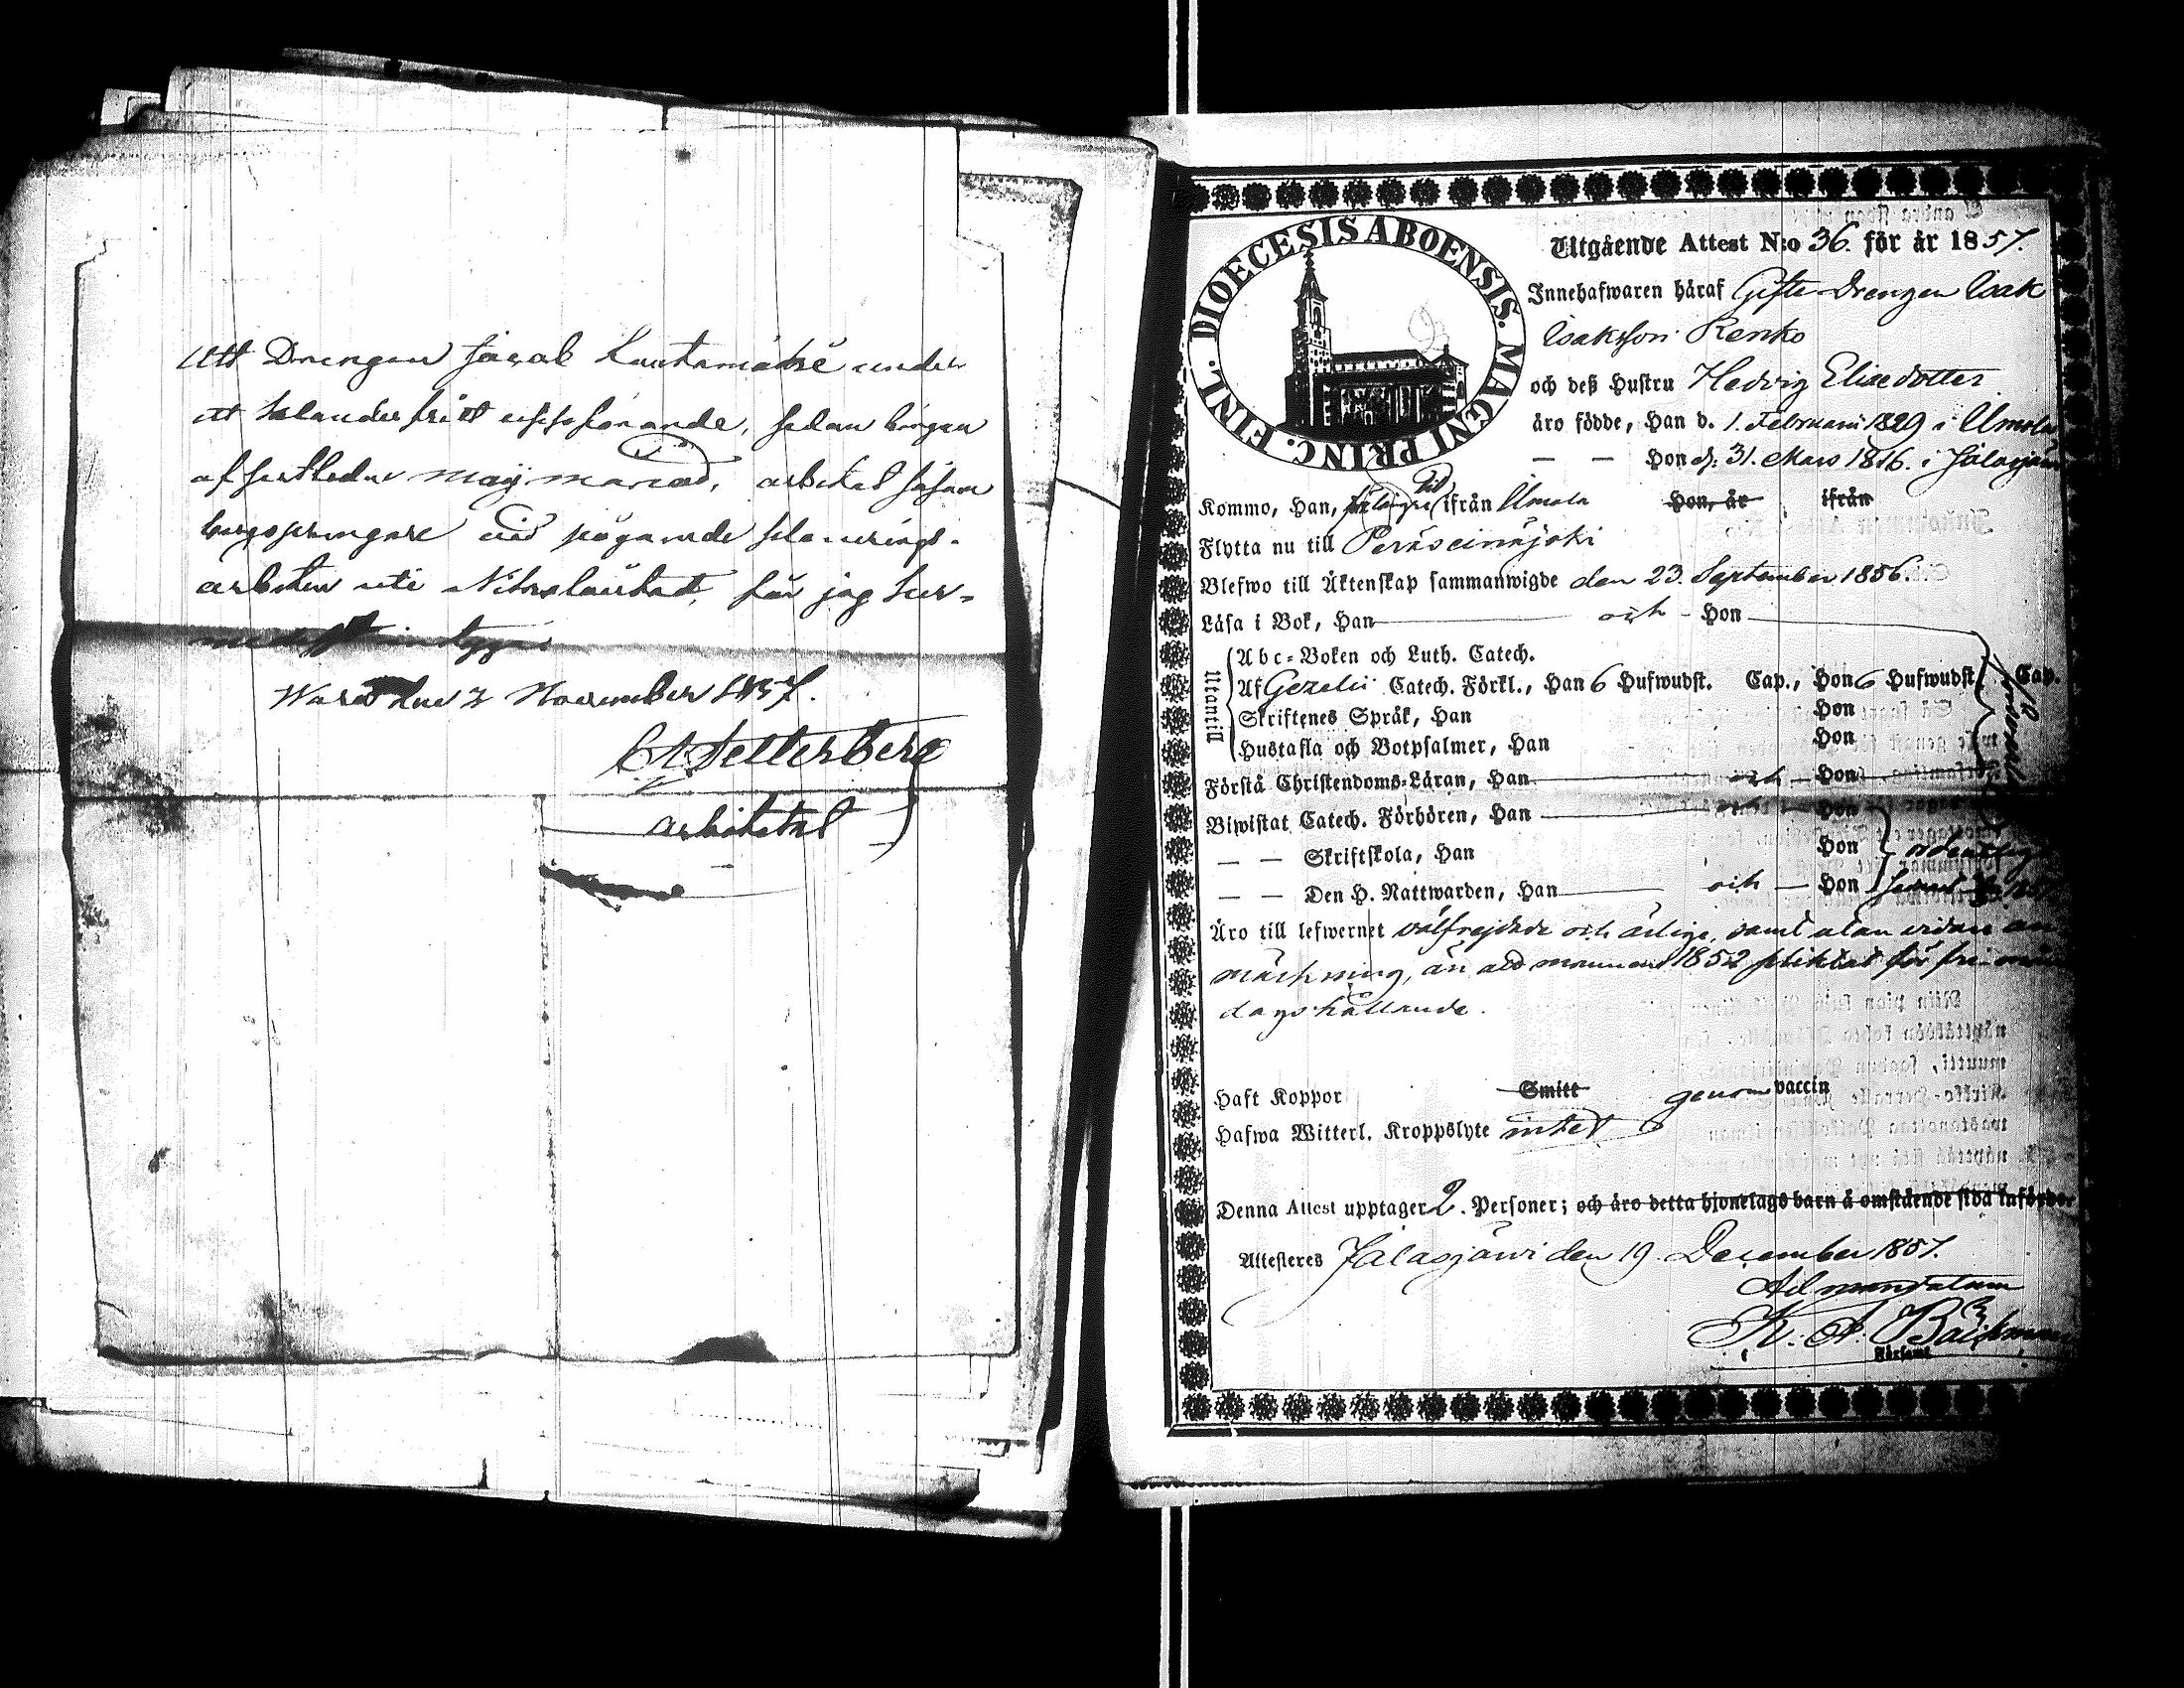 Att Drengen Jacob Luutamäki under
ett klanderfritt uppförande, sedan början
af sistleden maji månad, arbetat såsom
bergsprengare vid pågående planerings-
arbeten uti Nikolaistad, får jag här-
medelst intyga.
Wasa den 2 November 1857.
C A Setterberg
arkitekt
DIOECESIS ABOENSIS. MAGNI PRINC. FINL.
Utgående Attest N:o 36. för år 1857.
Innehafwaren häraf Gifte Drengen Isak
Isaksson Renko
och deß Hustru Hedvig Elisedotter
äro födde, Han d. 1. Februari 1829 i Ilmola
— — Hon d. 31. Mars 1816. i Jalasjärvi
Kommo, Han, för längre tid ifrån Ilmola Hon, år ifrån
Flytta nu till Peräseinäjoki
Blefwo till Äktenskap sammanwigde den 23. September 1856.
Läsa i Bok, Han och Hon
Utantill
Abc-Boken och Luth. Catech.
Af Gezelii Catech. Förkl., Han 6 Hufwudst. Cap., Hon 6 Hufwudst. Cap.
Skriftenes Språk, Han Hon
Hustafla och Botpsalmer, Han Hon
Förstå Christendoms-Läran, Han och Hon
Biwistat Catech. Förhören, Han och Hon
— — Skriftskola, Han Hon
— — Den H. Nattwarden, Han och Hon
Äro till lefwernet välfrejdade och ärliga, samt utan vidare an
märkning, än att mannen 1852 pliktat för fri mån
dagshållande.
Haft Koppor Smitt genom vaccin
Hafwa Witterl. Kroppslyte intet
Denna Attest upptager 2. Personer; och äro detta hjonelags barn å omstående sida införde.
Attesteres Jalasjärvi den 19. December 1857.
Ad mandatum
K. A. Bäckman